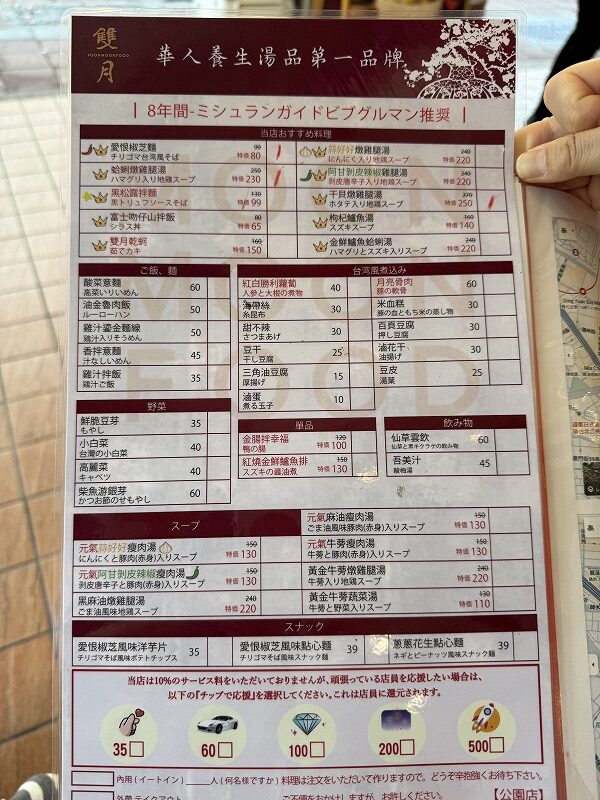 雙月
MOONMOONFOOD
華人養生湯品第一品牌
| 8年間-ミシュランガイドビブグルマン推奨 |
当店おすすめ料理
愛恨椒芝麵 90
チリゴマ台湾風そば 特価80
蛤蜊燉雞腿湯 250
ハマグリ入り地鶏スープ 特価230
黑松露拌麵 130
黒トリュフソースそば 特価99
富士吻仔山拌飯 80
シラス丼 特価65
雙月乾蚵 160
茹でカキ 特価150
蒜好好燉雞腿湯 240
にんにく入り地鶏スープ 特価220
阿甘剝皮辣椒雞腿湯 240
剥皮唐辛子入り地鶏スープ 特価220
干貝燉雞腿湯 270
ホタテ入り地鶏スープ 特価250
枸杞鱸魚湯 160
スズキスープ 特価140
金鮮鱸魚蛤蜊湯 240
ハマグリとスズキ入りスープ 特価220
ご飯、麺
酸菜意麵 60
高菜いりいめん
油金魯肉飯 50
ルーローハン
雞汁鎏金麵線 50
鶏汁入りそうめん
香拌意麵 45
汁なしいめん
雞汁拌飯 35
鶏汁ご飯
台湾風煮込み
紅白勝利蘿蔔 40
人参と大根の煮物
海帶絲 30
糸昆布
甜不辣 30
さつまあげ
豆干 25
干し豆腐
三角油豆腐 15
厚揚げ
滷蛋 10
煮る玉子
月亮骨肉 60
豚の軟骨
米血糕 30
豚の血ともち米の蒸し物
百頁豆腐 30
押し豆腐
滷花干 30
油揚げ
豆皮 25
湯葉
野菜
鮮脆豆芽 35
もやし
小白菜 40
台灣の小白菜
高麗菜 40
キャベツ
柴魚游銀芽 60
かつお節のせもやし
単品
金腸拌幸福 120
鴨の腸 特価100
紅燒金鮮鱸魚排 150
スズキの醤油煮 特価130
飲み物
仙草雲飲 60
仙草と黒キクラゲの飲み物
吾美汁 45
酸梅湯
スープ
元氣蒜好好瘦肉湯 150
にんにくと豚肉(赤身)入りスープ 特価130
元氣阿甘剝皮辣椒瘦肉湯 150
剥皮唐辛子と豚肉(赤身)入りスープ 特価130
黑麻油燉雞腿湯 240
ごま油風味地鶏スープ 特価220
元氣麻油瘦肉湯 150
ごま油風味豚肉(赤身)入りスープ 特価130
元氣牛蒡瘦肉湯 150
牛蒡と豚肉(赤身)入りスープ 特価130
黃金牛蒡燉雞腿湯 240
牛蒡入り地鶏スープ 特価220
黃金牛蒡蔬菜湯 130
牛蒡と野菜入りスープ 特価110
スナック
愛恨椒芝風味洋芋片 35
チリゴマそば風味ポテトチップス
愛恨椒芝風味點心麵 39
チリゴマそば風味スナック麺
蔥蔥花生點心麵 39
ネギとピーナッツ風味スナック麺
当店は10%のサービス料をいただいておりませんが、頑張っている店員を応援したい場合は、
以下の「チップで応援」を選択してください。これは店員に還元されます。
35□ 60□ 100□ 200□ 500□
□ 内用(イートイン)____人(何名様ですか) 料理は注文をいただいて作りますので。どうぞ辛抱強くお待ち下さい。
外帶 テイクアウト ご不便をおかけしますが、お許しください。 【公園店】